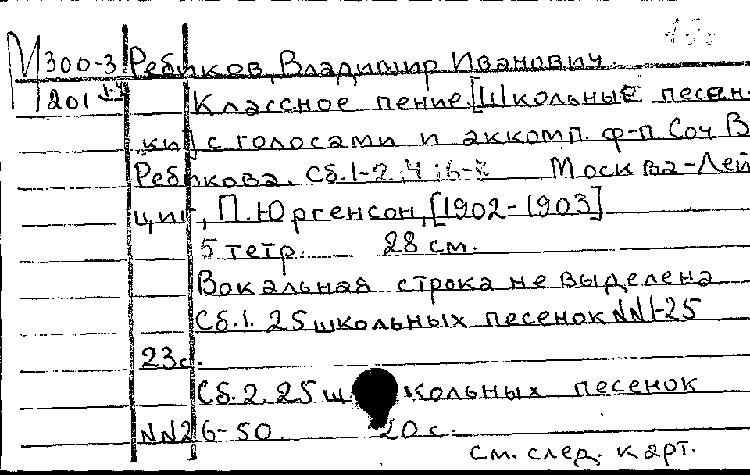 М300-3 Ребиков, Владимир Иванович.
201 Классное пение. [Школьные песен-
ки] с голосами и аккомп. ф-п. Соч. В.
Ребикова. Сб. 1-2, 4, 6-8 Москва-Лей
пциг, П. Юргенсон, [1902-1903]
5 тетр. 28 см.
Вокальная строка не выделена
Сб. 1. 25 школьных песенок NN1-25
23с.
Сб. 2. 25 школьных песенок
NN26-50. 20с.
см. след. карт.